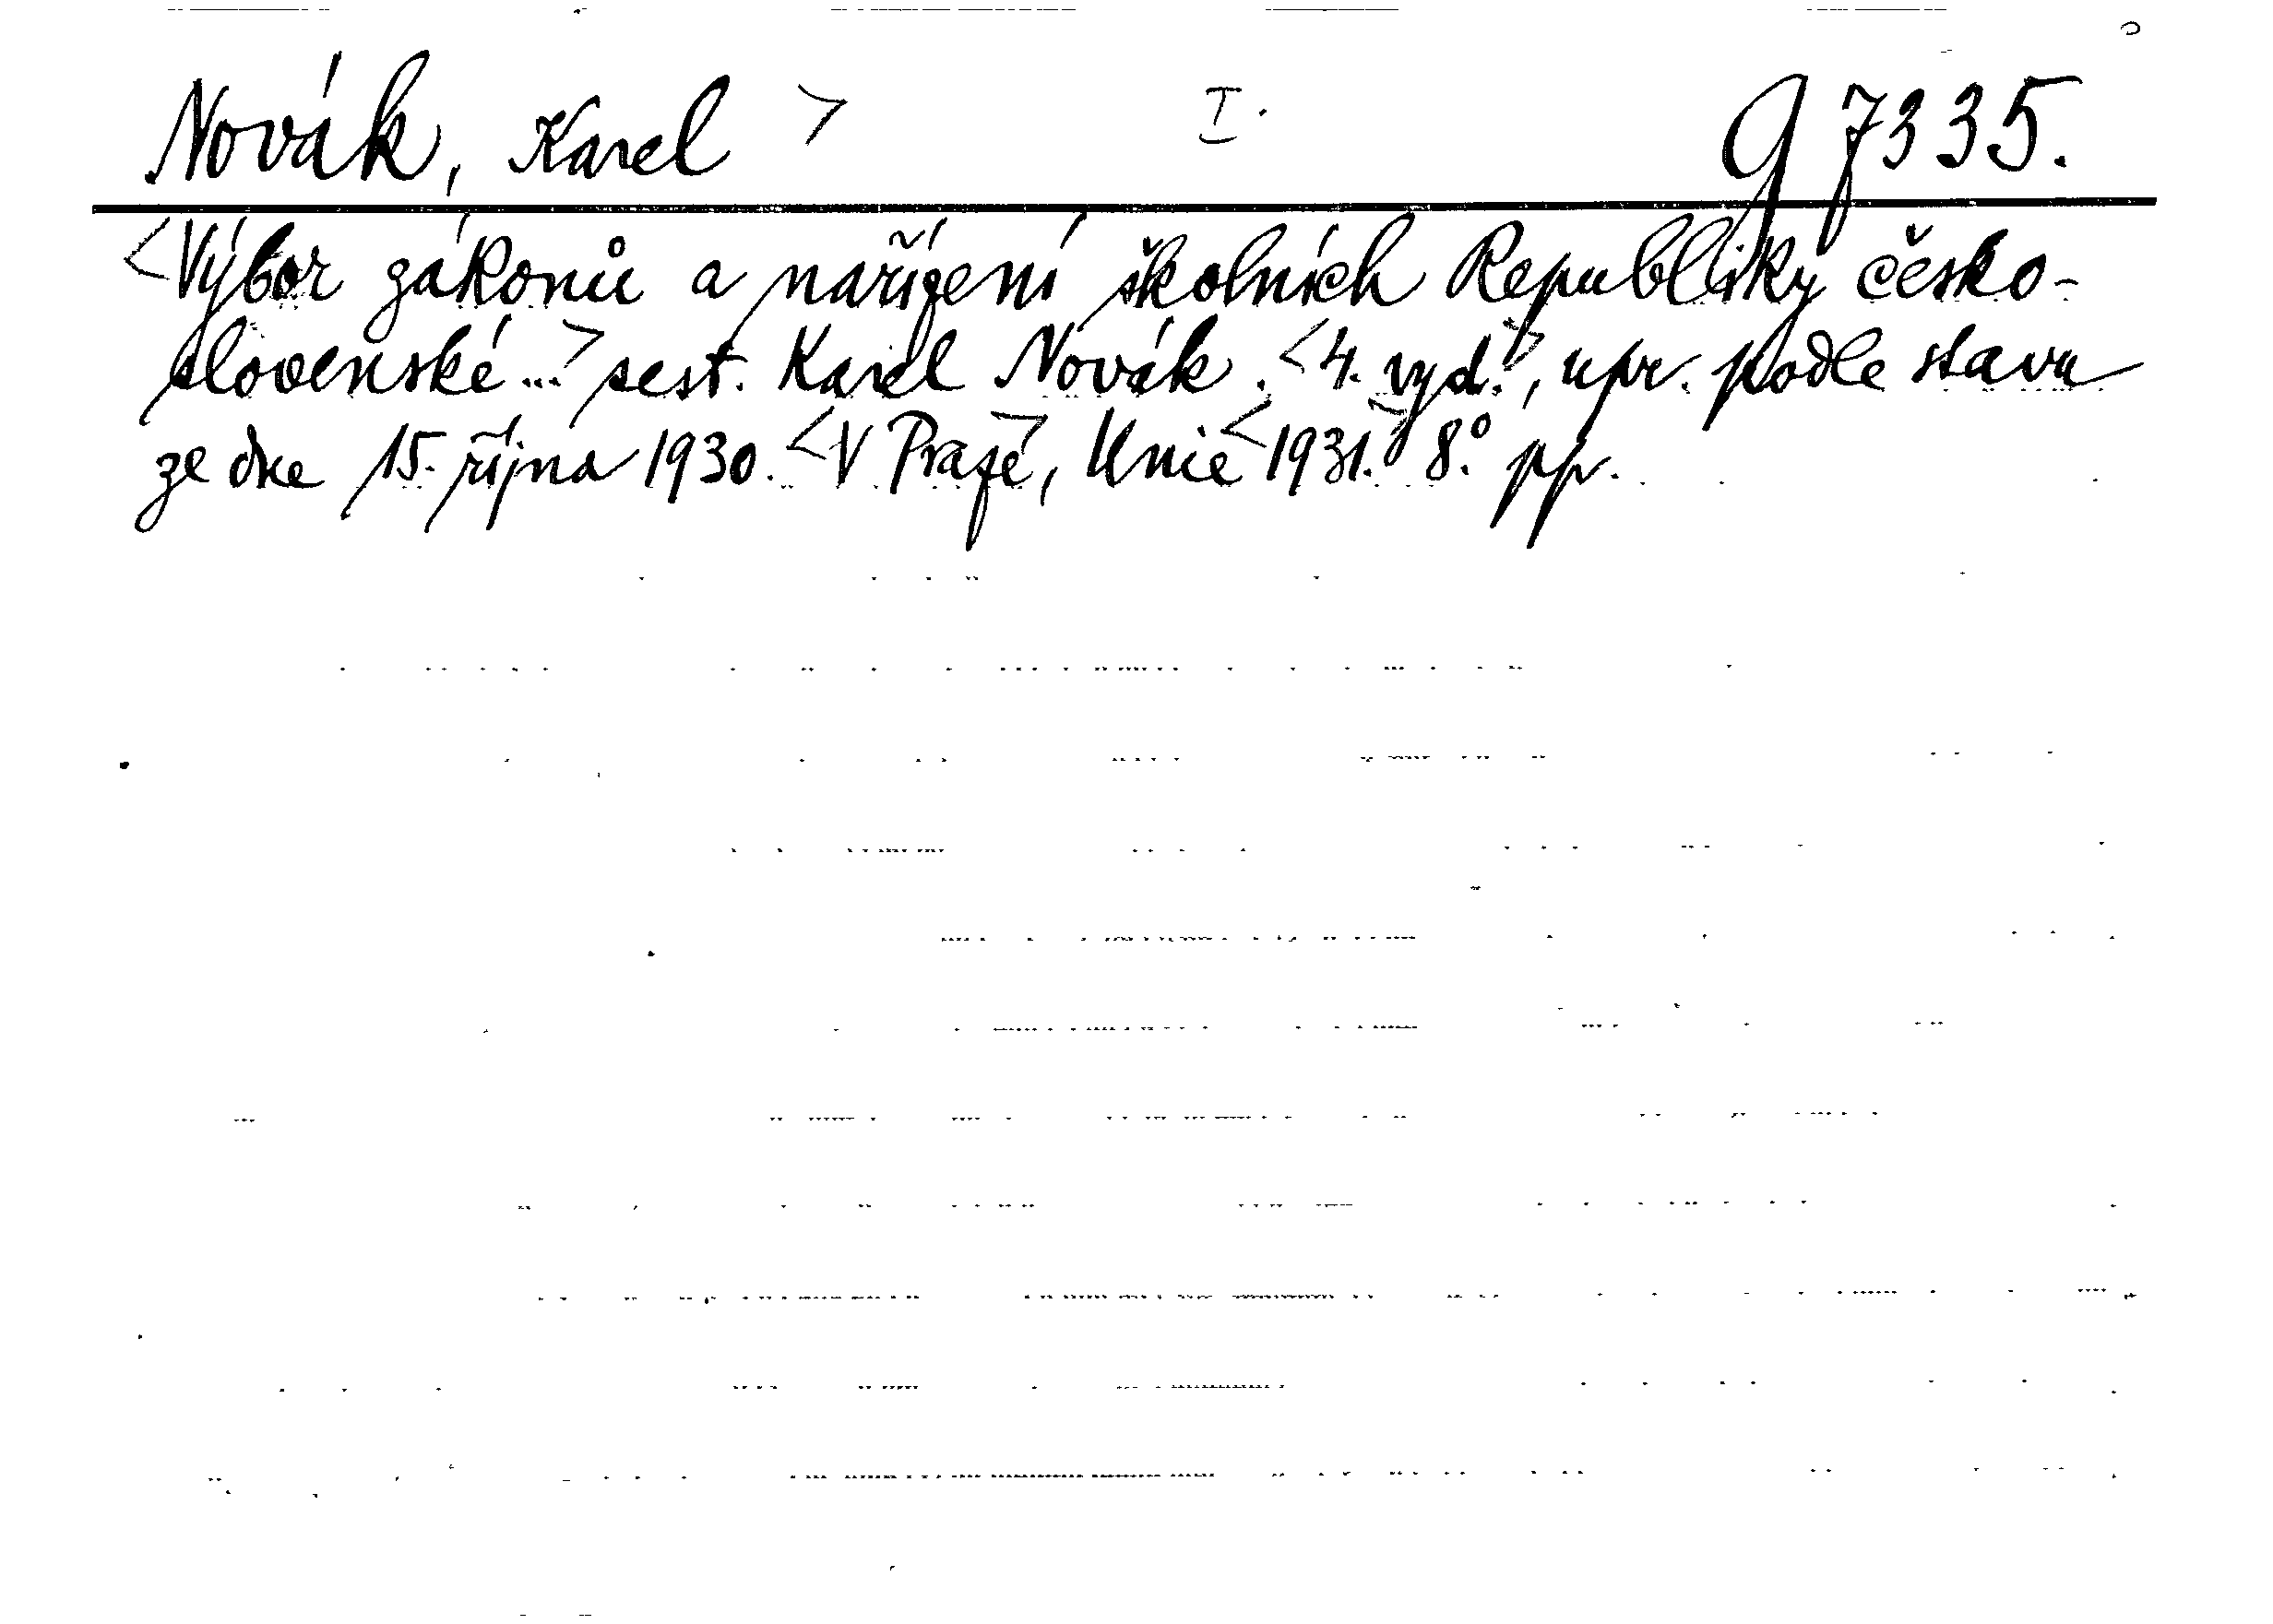 Novák, Karel > I. g 7335.
<Výbor zákonů a nařízení školních Republiky česko-
slovenské...> sest. Karel Novák. <4. vyd.>, upr. podle stavu
ze dne 15. října 1930. <V Praze>, Unie <1931.> 8.° pp.